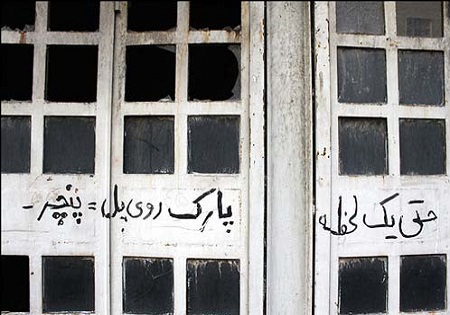 حتی یک لحظه پارک روی پل = پنچر -